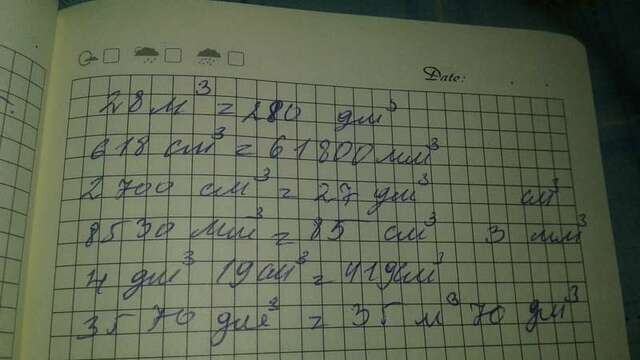 Date:
28 м³ = 280 дм³
618 см³ = 61800 мм³
2700 см³ = 27 дм³ см³
8530 мм³ = 85 см³ 3 мм³
4 дм³ 19 см³ =
3570 дм³ = 35 м³ 70 дм³